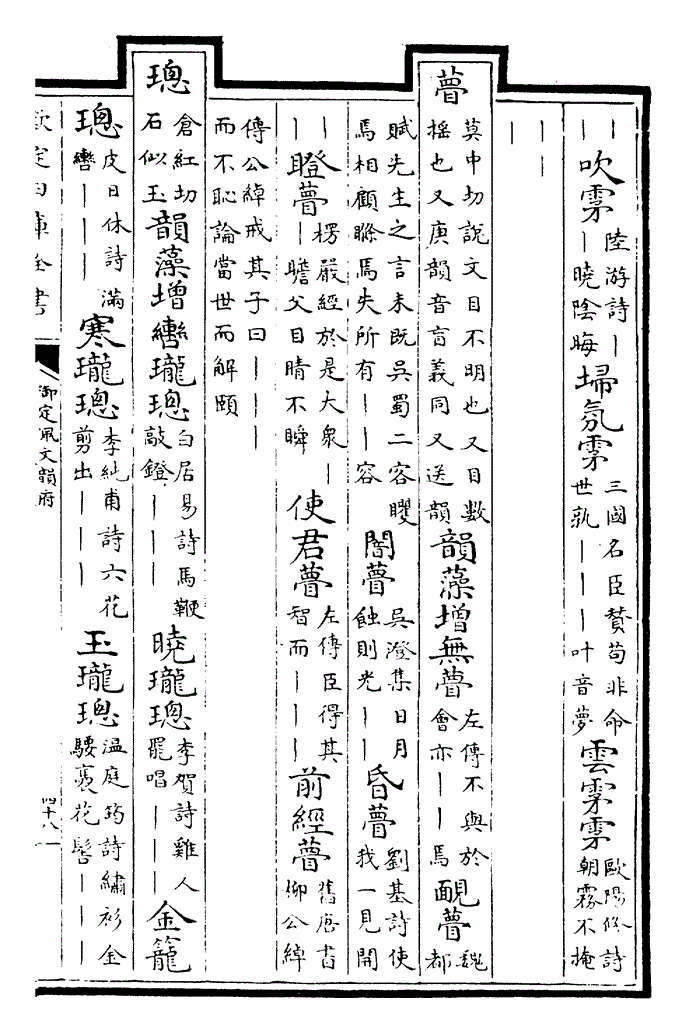 ｜｜吹雺陸游詩｜｜曉陰晦埽氛雺三國名臣贊苟非命世孰｜｜｜叶音夢雲雺雺歐陽修詩朝霧不掩
｜｜｜｜
瞢莫中切說文目不明也又目數搖也又庚韻音盲義同又送韻韻藻增無瞢左傳不與於會亦｜｜焉靦瞢魏都
賦先生之言未既吳蜀二客矍焉相顧䁾焉失所有｜｜容闇瞢吳澄集日月蝕則光｜｜昏瞢劉基詩使我一見開
｜｜瞪瞢楞嚴經於是大衆｜｜瞻父目睛不瞬使君瞢左傳臣得其智而｜｜｜前經瞢舊唐書柳公綽
傳公綽戒其子曰｜｜｜｜而不恥論當世而解頤
璁倉紅切石似玉韻藻增轡瓏璁白居易詩馬鞭敲鐙｜｜｜曉瓏璁李賀詩雞人罷唱｜｜｜金籠
璁皮日休詩滿轡｜｜｜｜寒瓏璁李純甫詩六花剪出｜｜｜玉瓏璁溫庭筠詩繡衫金騕褭花髻｜｜｜
欽定四庫全書
御定佩文韻府
四十八